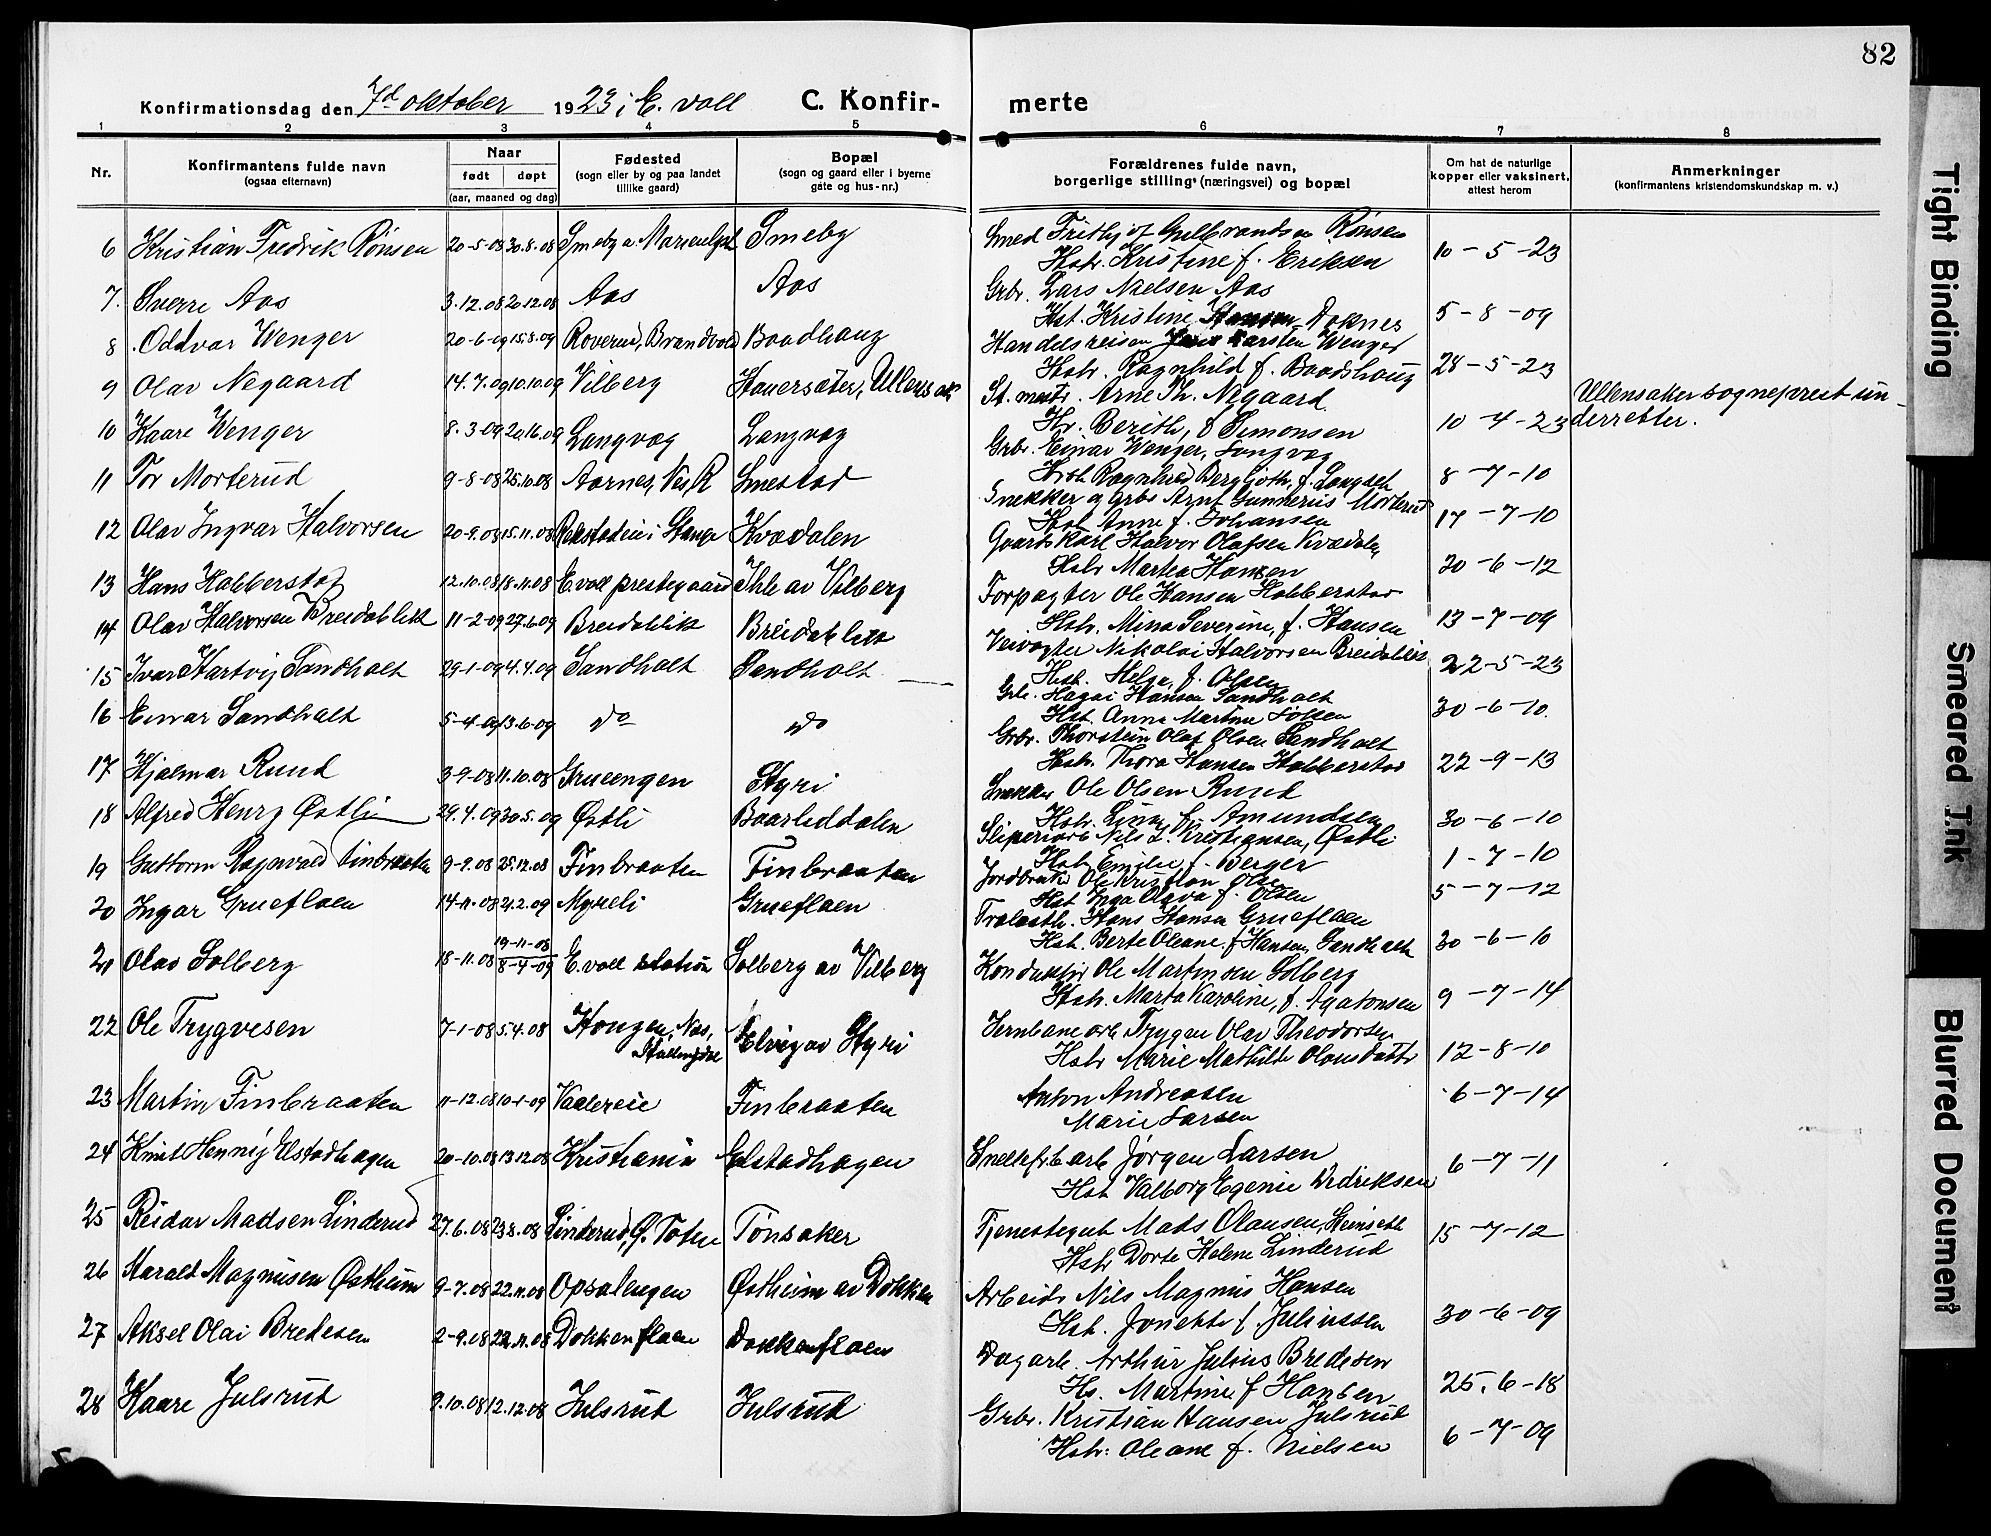 82
Konfirmationsdag den 7d oktober 1923 i E. voll C. Konfir- merte
1 2 3 4 5 6 7 8
Nr. Konfirmantens fulde navn (ogsaa efternavn) Naar født døpt (aar, maaned og dag) Fødested (sogn eller by og paa landet tillike gaard) Bopæl (sogn og gaard eller i byerne gate og hus-nr.) Forældrenes fulde navn, borgerlige stilling (næringsvei) og bopæl Om hat de naturlige kopper eller vaksinert, attest herom Anmerkninger (konfirmantens kristendomskundskap m. v.)
6 Kristian Fredrik Rønsen 20-5-08 30.8.08 Smeby a. Smeby Smed Frithjof Gulbrandsen Rønsen
Hstr. Kristine f. Eriksen 10-5-23
7. Sverre Aas 3.12.08 20.12.08 Aas Aas Grbr. Lars Nielsen Aas
Hst. Kristine Doknes 5-8-09
8 Oddvar Wenger 20-6-09 15.8.09 Roverud, Brandvold Baadhaug Handelsreisen Karsten Wenger
Hstr. Ragnhild f. Baadshaug 28-5-23
9 Olav Negaard 14.7.09 10.10.09 Vilberg Hauersæter, Ullensak St. mestr. Arne Th. Negaard
Hr. Berith, f Simonsen 10-4-23 Ullensaker sogneprest un-
derretter.
10 Kaare Wenger 8.3-09 20.6.09 Langvag Langvag Grbr. Einar Wenger, Langvag
Hstr Ragnhild Bergljoth, f. Langseth 8-7-10
11 Tor Morterud 9-8-08 25.10.08 Aarnes, Nes, R Smestad Snekker og Grbr Arnt Gunnerius Morterud
Hstr Anne f. Johansen 17-7-10
12 Olav Ingvar Halvorsen 20-9.08 15.11.08 i Stange Kvædalen Gaardskarl Halvor Olafsen Kvædalen
Hstr Martea Hansen 20-6-12
13 Hans Habberstad 12.10.08 18.11.08 E.voll prestegaard Ihle av Vilberg Forpagter Ole Hansen Habberstad
Hstr. Mina Severine, f. Hansen 13-7-09
14 Olav Halvorsen Breidablikk 11-2-09 27.6.09 Breidablik Breidablikk Veivogter Nikolai Halvorsen Breidablik
Hst. Helga, f. Olsen 22-5-23
15 Ivar Hartvig Sandholt 29-1-09 4.4.09 Sandholt Sandholt Grb. Hagai Hansen Sandholt
Hst. Anna Martine 30-6-10.
16 Einar Sandholt 5-4-09 13.6-09 do do Grbr. Thorstein Olaf Olsen Sandholt
Hstr. Thora Hansen Habberstad 22-9-13
17 Hjalmar Ruud 3-9-08 11.10.08 Grueengen Styri Snekker Ole Olsen Ruud
Hstr. Lina f. Amundsen 30-6-10
18 Alfred Henry Østli 29.4.09 30.5.09 Østli Baarliddalen Sliperiarb Nils L. Kristiansen, Østli
Hstr Emilie f. Berger 1-7-10
19 Guttorm Ragnvald Finbraaten 9-9.08 25.12.08 Finbraaten Finbraaten Jordbruk Ole Kristian Olsen
Hst Inga Olava f. Olsen 5-7-12
20 Ingar Grueflaen 14-11-08 21.2.09 Myreli Grueflaen Trælasth. Hans Hansen Grueflaen
Hst. Berte Oleane, f Hansen, Sandholt 30-6-10
21 Olav Solberg 18-11.08 19-11-08 8-4-09 E.voll station Solberg av Vilberg Konduktør Ole Martinsen Solberg
Hstr. Marta Karoline, f. Agatonsen 9-7-14
22 Ole Trygvesen 7-1-08 5.4.08 Haugen, Nes, Hallingdal Elvig av Styri Jernbanearb Trygve Olav Theodorsen
Hstr Marie Mathilde Olausdatter 12-8-10
23 Martin Finbraaten 11-12.08 10-1-09 Finbraaten Anton Andreassen
Marie Larsen 6-7-14
24 Knut Henry Elstadhagen 20-10.08 13.12.08 Kristiania Elstadhagen Snekkerarb Jørgen Larsen
Hst Valborg Egenie Didriksen 6-7-11
25 Reidar Madsen Linderud 27.6.08 23.8.08 Linderud, Ø. Toten Tønsaker Tjenestegut Mads Olausen,
Hstr Dorte Helene Linderud 15-7-12
26 Harald Magnusen Østheim 9-7.08 22.11.08 Opsalengen Østheim av Dokken Arbeids Nils Magnus Hansen
Hst. Jonette f. Juliussen 30-6-09
27 Aksel Olai Bredesen 2-9.08 22.11.08 Dokkenflaen Dokkenflaen Dagarb. Arthur Julius Bredesen
Hs. Martine f Hansen 25.6-18
28 Kaare Julsrud 9.10.08 12.12.08 Julsrud Julsrud Grbr. Kristian Hansen Julsrud
Hstr: Oleane f. Nielsen 6-7-09
Tight Binding
Smeared Ink
Blurred Document